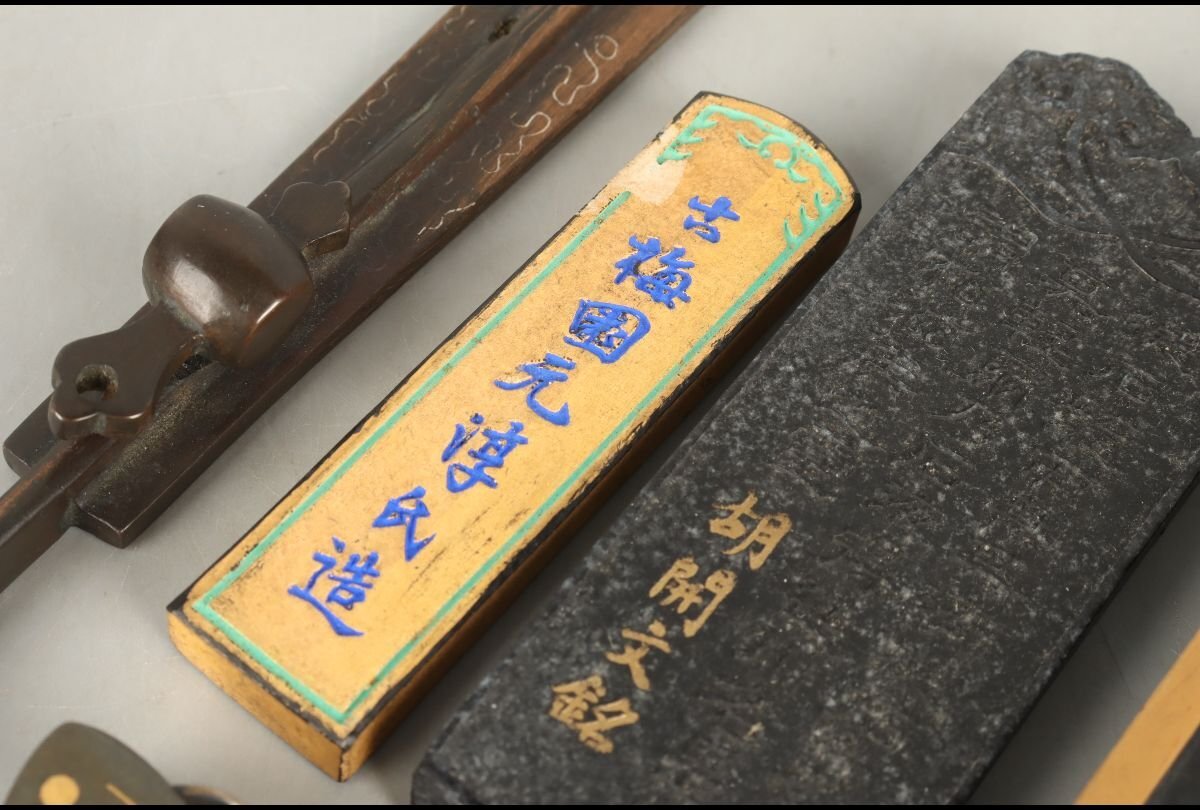 古梅園元淳氏造
胡開文銘